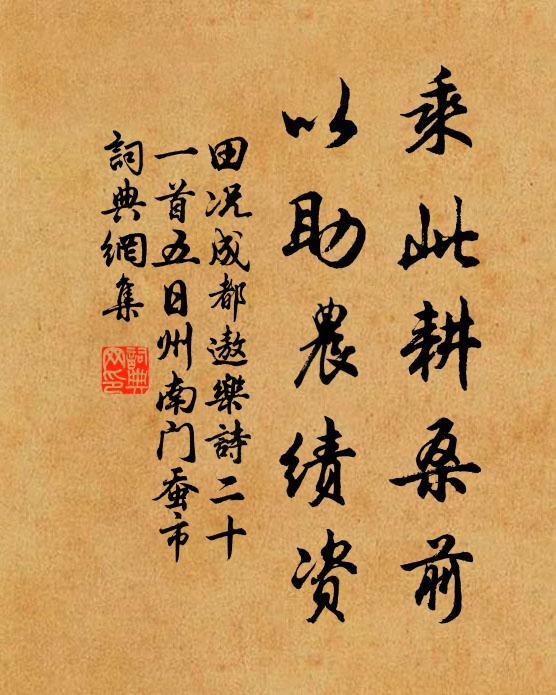 乘此耕桑前
以助農績资
田况成都遨樂詩二十
一首五日州南门蚕市
詞典網集
詞典网印